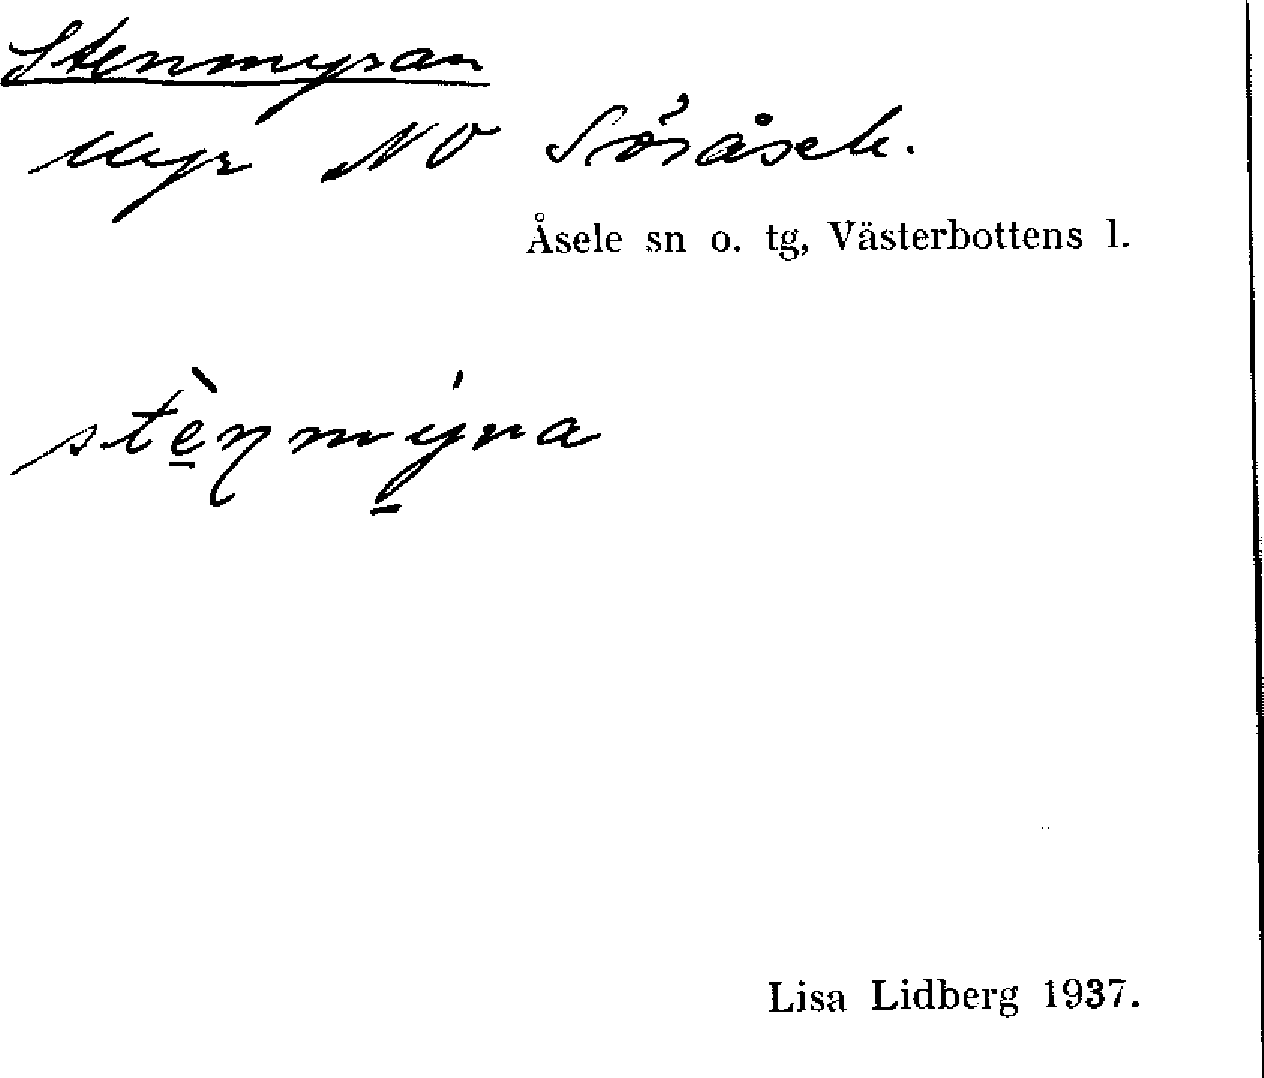 Stenmyran
Myr NO Söråsele.
Åsele sn o. tg, Västerbottens l.
stè̱ŋmý̱ra
Lisa Lidberg 1937.